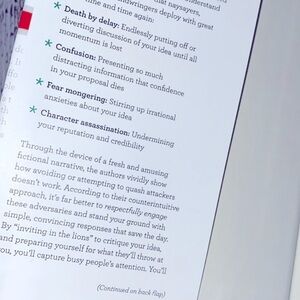 that naysayers,
and downswingers deploy with great
time and time again:
* Death by delay: Endlessly putting off or
diverting discussion of your idea until all
momentum is lost
* Confusion: Presenting so much
distracting information that confidence
in your proposal dies
* Fear mongering: Stirring up irrational
anxieties about your idea
* Character assassination: Undermining
your reputation and credibility
Through the device of a fresh and amusing
fictional narrative, the authors vividly show
how avoiding or attempting to quash attackers
doesn't work. According to their counterintuitive
approach, it's far better to respectfully engage
these adversaries and stand your ground with
simple, convincing responses that save the day.
By "inviting in the lions" to critique your idea,
and preparing yourself for what they'll throw at
you, you'll capture busy people's attention. You'll
(Continued on back flap)